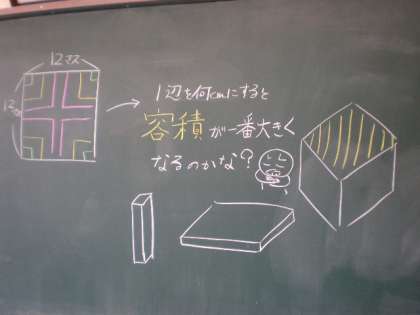 12マス
12マス
1辺を何cmにすると
容積が一番大きく
なるのかな?